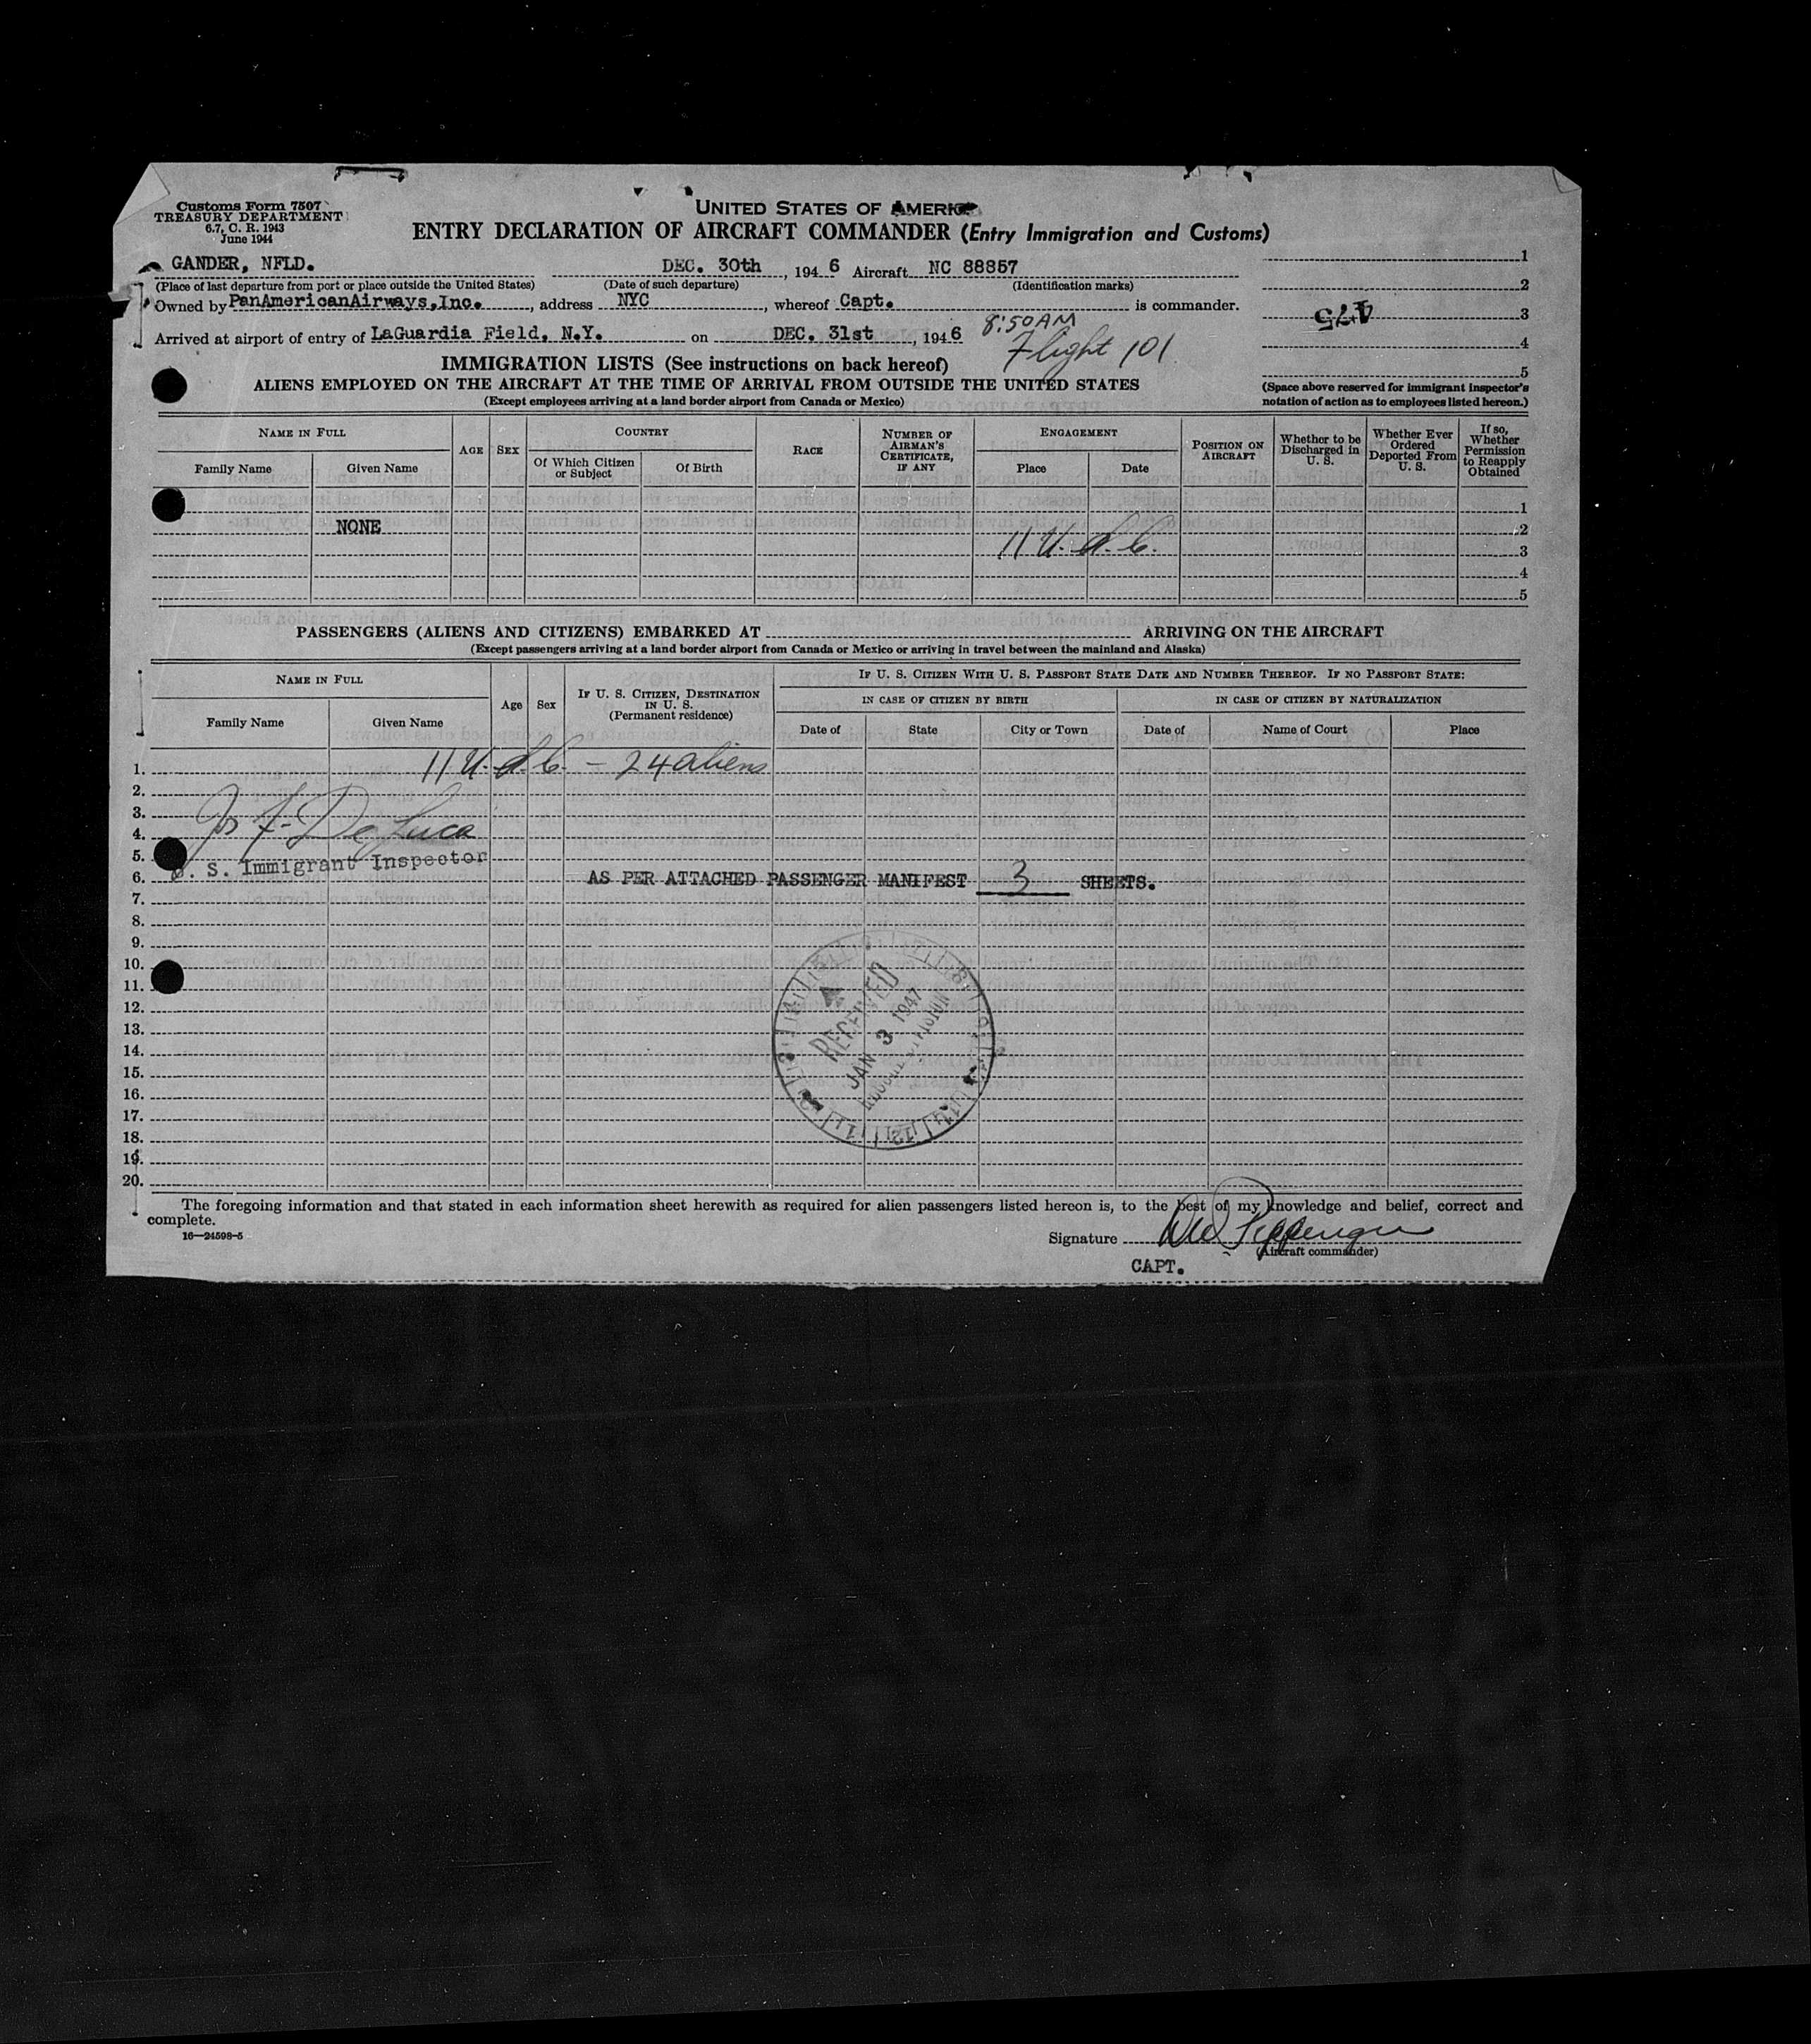 Customs Form 7507
TREASURY DEPARTMENT
6.7, C. R. 1943
June 1944
UNITED STATES OF AMERICA
ENTRY DECLARATION OF AIRCRAFT COMMANDER (Entry Immigration and Customs)
GANDER, NFLD. DEC. 30th, 1946 Aircraft NC 88857
(Place of last departure from port or place outside the United States) (Date of such departure) (Identification marks)
Owned by PanAmericanAirways,Inc., address NYC, whereof Capt. is commander.
Arrived at airport of entry of LaGuardia Field, N.Y. on DEC. 31st, 1946 8:50AM
Flight 101
1
2
3
4
5
475
(Space above reserved for immigrant inspector's
notation of action as to employees listed hereon.)
IMMIGRATION LISTS (See instructions on back hereof)
ALIENS EMPLOYED ON THE AIRCRAFT AT THE TIME OF ARRIVAL FROM OUTSIDE THE UNITED STATES
(Except employees arriving at a land border airport from Canada or Mexico)
NAME IN FULL
Family Name Given Name
AGE
SEX
COUNTRY
Of Which Citizen
or Subject
Of Birth
RACE
NUMBER OF
AIRMAN'S
CERTIFICATE,
IF ANY
ENGAGEMENT
Place Date
POSITION ON
AIRCRAFT
Whether to be
Discharged in
U. S.
Whether Ever
Ordered
Deported From
U. S.
If so,
Whether
Permission
to Reapply
Obtained
1
NONE 2
11 U.S.C. 3
4
5
PASSENGERS (ALIENS AND CITIZENS) EMBARKED AT ARRIVING ON THE AIRCRAFT
(Except passengers arriving at a land border airport from Canada or Mexico or arriving in travel between the mainland and Alaska)
NAME IN FULL
Family Name Given Name
Age
Sex
IF U. S. CITIZEN, DESTINATION
IN U. S.
(Permanent residence)
IF U. S. CITIZEN WITH U. S. PASSPORT STATE DATE AND NUMBER THEREOF. IF NO PASSPORT STATE:
IN CASE OF CITIZEN BY BIRTH IN CASE OF CITIZEN BY NATURALIZATION
Date of State City or Town Date of Name of Court Place
1. 11 U.S.C. - 24 aliens
2.
3.
4. De Luca
5.
. S. Immigrant Inspector
6. AS PER ATTACHED PASSENGER MANIFEST 3 SHEETS.
7.
8.
9.
10.
11.
12.
13.
14.
15.
16.
17.
18.
19.
20.
RECEIVED
JAN 3 1947
The foregoing information and that stated in each information sheet herewith as required for alien passengers listed hereon is, to the best of my knowledge and belief, correct and
complete.
16—24598-5
Signature Pippenger
(Aircraft commander)
CAPT.